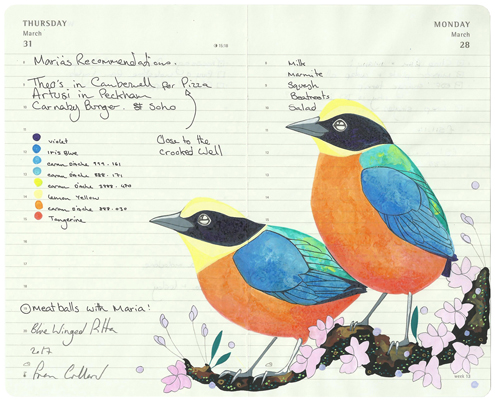 THURSDAY
March
31
Maria's Recommendations.
Theo's in Camberwell for Pizza
Artusi in Peckham
Carnaby Burger. St Soho
Close to the
crooked Well
violet
Iris Blue
caran D'ache 999.161
caran D'ache 888.171
lemon Yellow
Tangerine
Meatballs with Maria!
Blue Winged Pitta
2017
MONDAY
March
28
Milk
Marmite
Squash
Beetroots
Salad
week 13